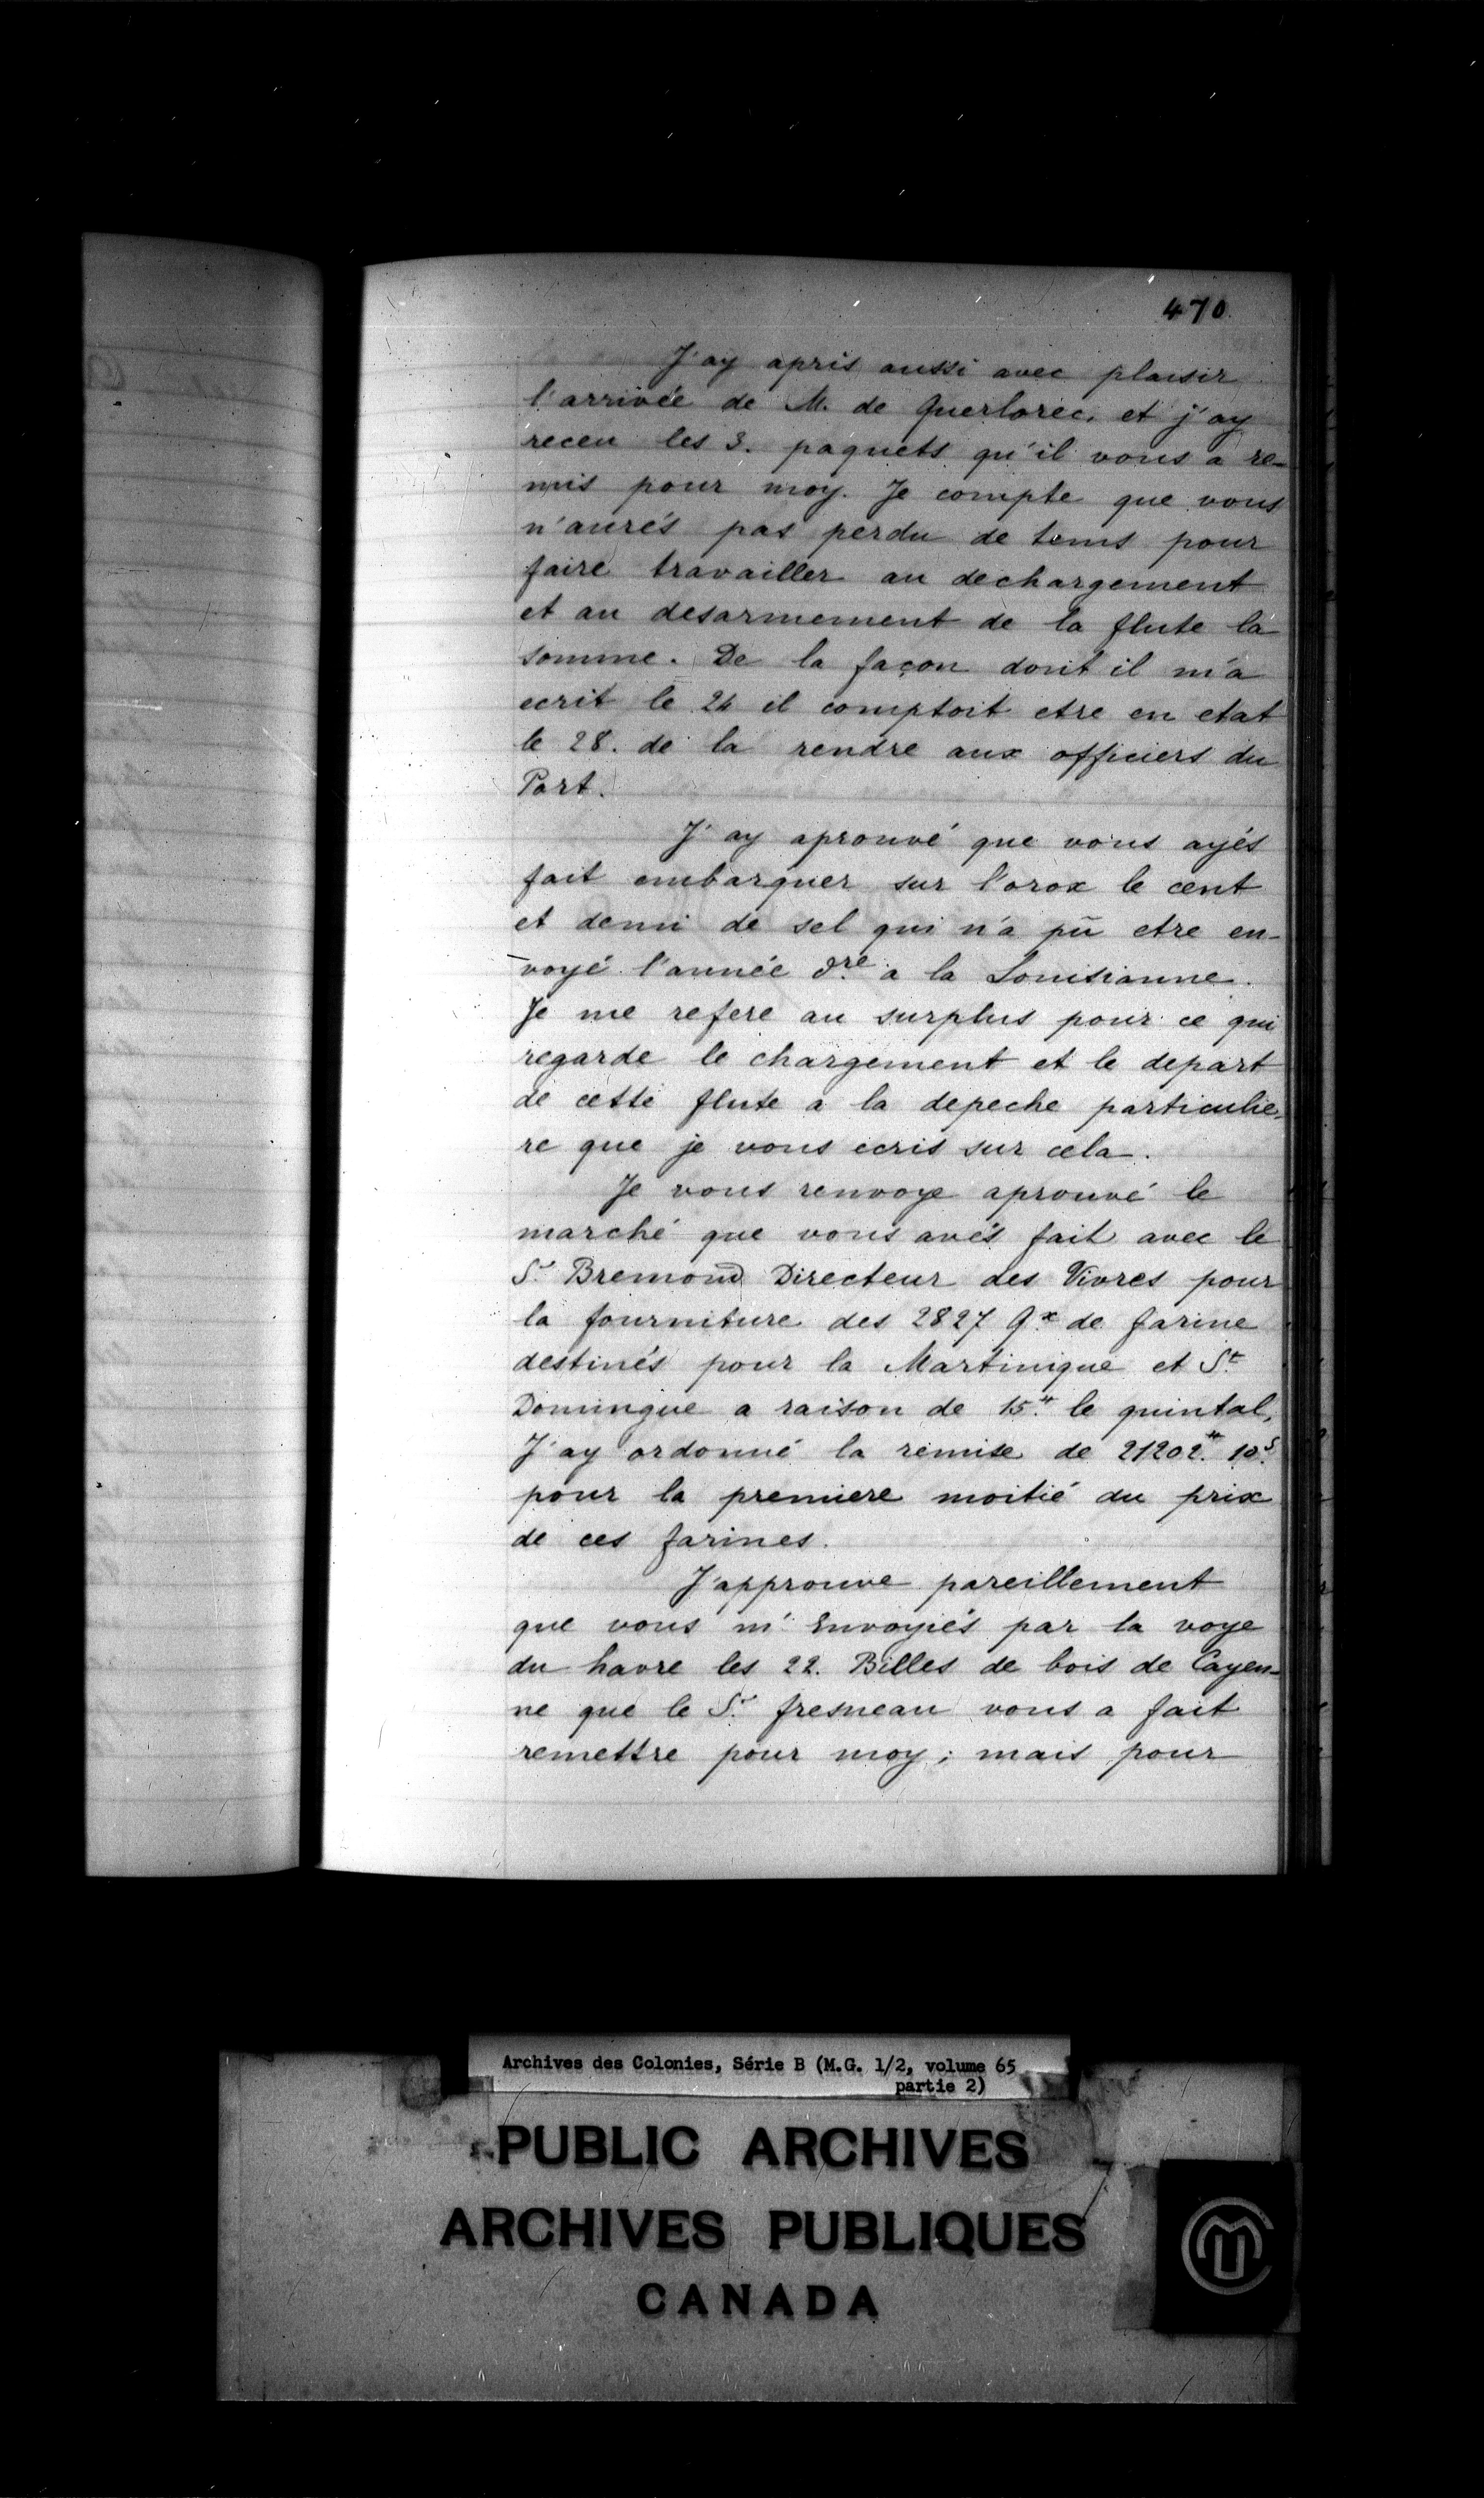 470
J'ay apris aussi avec plaisir
l'arrivée de M. de Querlorec, et j'ay
receu les 3. paquets qu'il vous a re-
mis pour moy. Je compte que vous
n'aurés pas perdu de tems pour
faire travailler au dechargement
et au desarmement de la flute la
somme. De la façon dont il m'a
ecrit le 24 il comptoit etre en etat
le 28. de la rendre aux officiers du
Port.
J'ay aprouvé que vous ayés
fait embarquer sur l'orox le cent
et demi de sel qui n'a pû etre en-
voyé l'année dre a la Louisianne.
Je me refere au surplus pour ce qui
regarde le chargement et le depart
de cette flute a la depeche particulie-
re que je vous ecris sur cela.
Je vous renvoye aprouvé le
marché que vous avés fait avec le
Sr. Bremond Directeur des Vivres pour
la fourniture des 2827 Qx de farine
destinés pour la Martinique et St.
Domingue a raison de 15.# le quintal,
J'ay ordonné la remise de 21202.# 10.s
pour la premiere moitié du prix
de ces farines.
J'approuve pareillement
que vous m'Envoyiés par la voye
du havre les 22. Billes de bois de Cayen-
ne que le Sr. fresneau vous a fait
remettre pour moy; mais pour
Archives des Colonies, Série B (M.G. 1/2, volume 65
partie 2)
PUBLIC ARCHIVES
ARCHIVES PUBLIQUES
CANADA